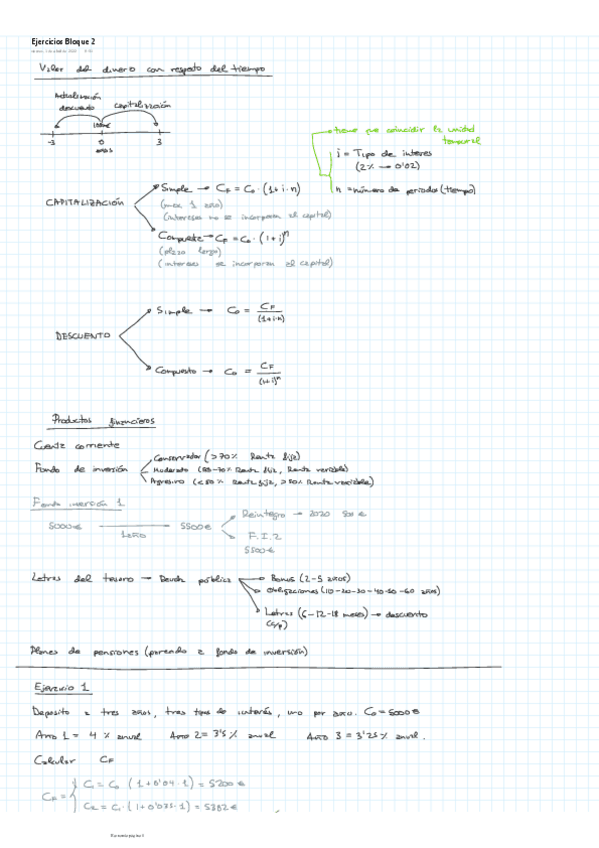 Ejercicios Bloque 2
Valor del dinero con respecto del tiempo
Actualización
descuento
capitalización
1000€
-3 0 3
años
tiene que coincidir la unidad
temporal
i = Tipo de interes
(2% → 0'02)
n = número de periodos (tiempo)
CAPITALIZACIÓN
Simple → CF = C0 · (1 + i · n)
(max 1 año)
(intereses no se incorporan al capital)
Compuesta → CF = C0 · (1 + i)^n
(plazo largo)
(intereses se incorporan al capital)
DESCUENTO
Simple → C0 = CF / (1+i·n)
Compuesto → C0 = CF / (1+i)^n
Productos financieros
Cuenta corriente
Fondo de inversión
Conservador (>70% Renta fija)
Moderado (50-70% Renta fija, Renta variable)
Agresivo (<50% Renta fija, >50% Renta variable)
Fondo inversión 1
5000€ 5500€
1 año
Reintegro → 2020 500€
F.I.2
5500€
Letras del tesoro → Deuda pública
Bonos (2-5 años)
Obligaciones (10-20-30-40-50-60 años)
Letras (6-12-18 meses) → descuento
(c/p)
Planes de pensiones (parecido a fondo de inversión)
Ejercicio 1
Deposito a tres años, tres tipos de interés, uno por año. C0 = 5000€
Año 1 = 4% anual Año 2 = 3'5% anual Año 3 = 3'25% anual.
Calcular CF
CF =
C1 = C0 (1 + 0'04 · 1) = 5200€
C2 = C1 · (1 + 0'035 · 1) = 5382€